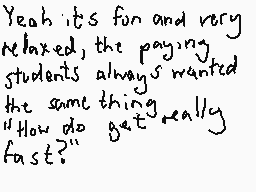 Yeah it's fun and very
relaxed, the paying
students always wanted
the same thing
"How do get really
fast?"